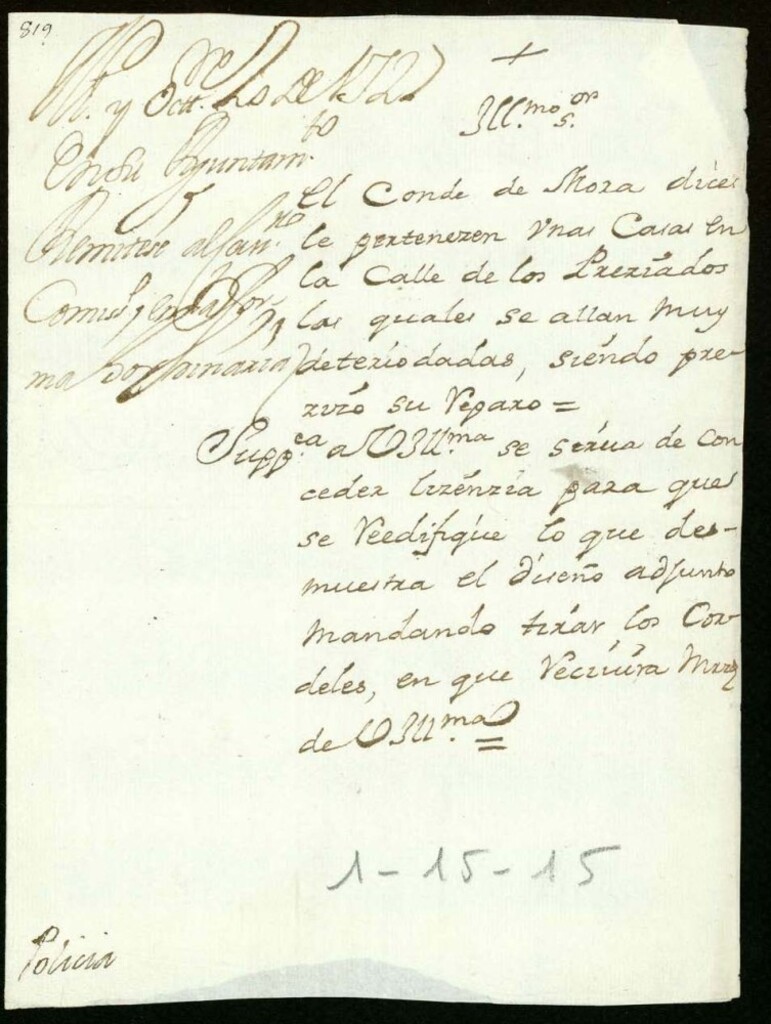 819
M.d y Octt.re 20 de 1722
En su Ayuntam.to
Remitese al Cau.ro
Comiss.o, en la for
ma ordinaria
+
Ill.mo S.or
El Conde de Mora dice
le pertenezen Vnas Casas en
la Calle de los Preziados
las quales se allan muy
deteriodadas, siendo pre-
zizo su Reparo =
Supp.ca a V Ill.ma se sirua de con
ceder lizenzia para que
se Reedifique lo que de-
muestra el diseño adjunto
mandando tirar los Cor
deles, en que Reciuira Mrzd
de V Ill.ma =
1-15-15
Policia